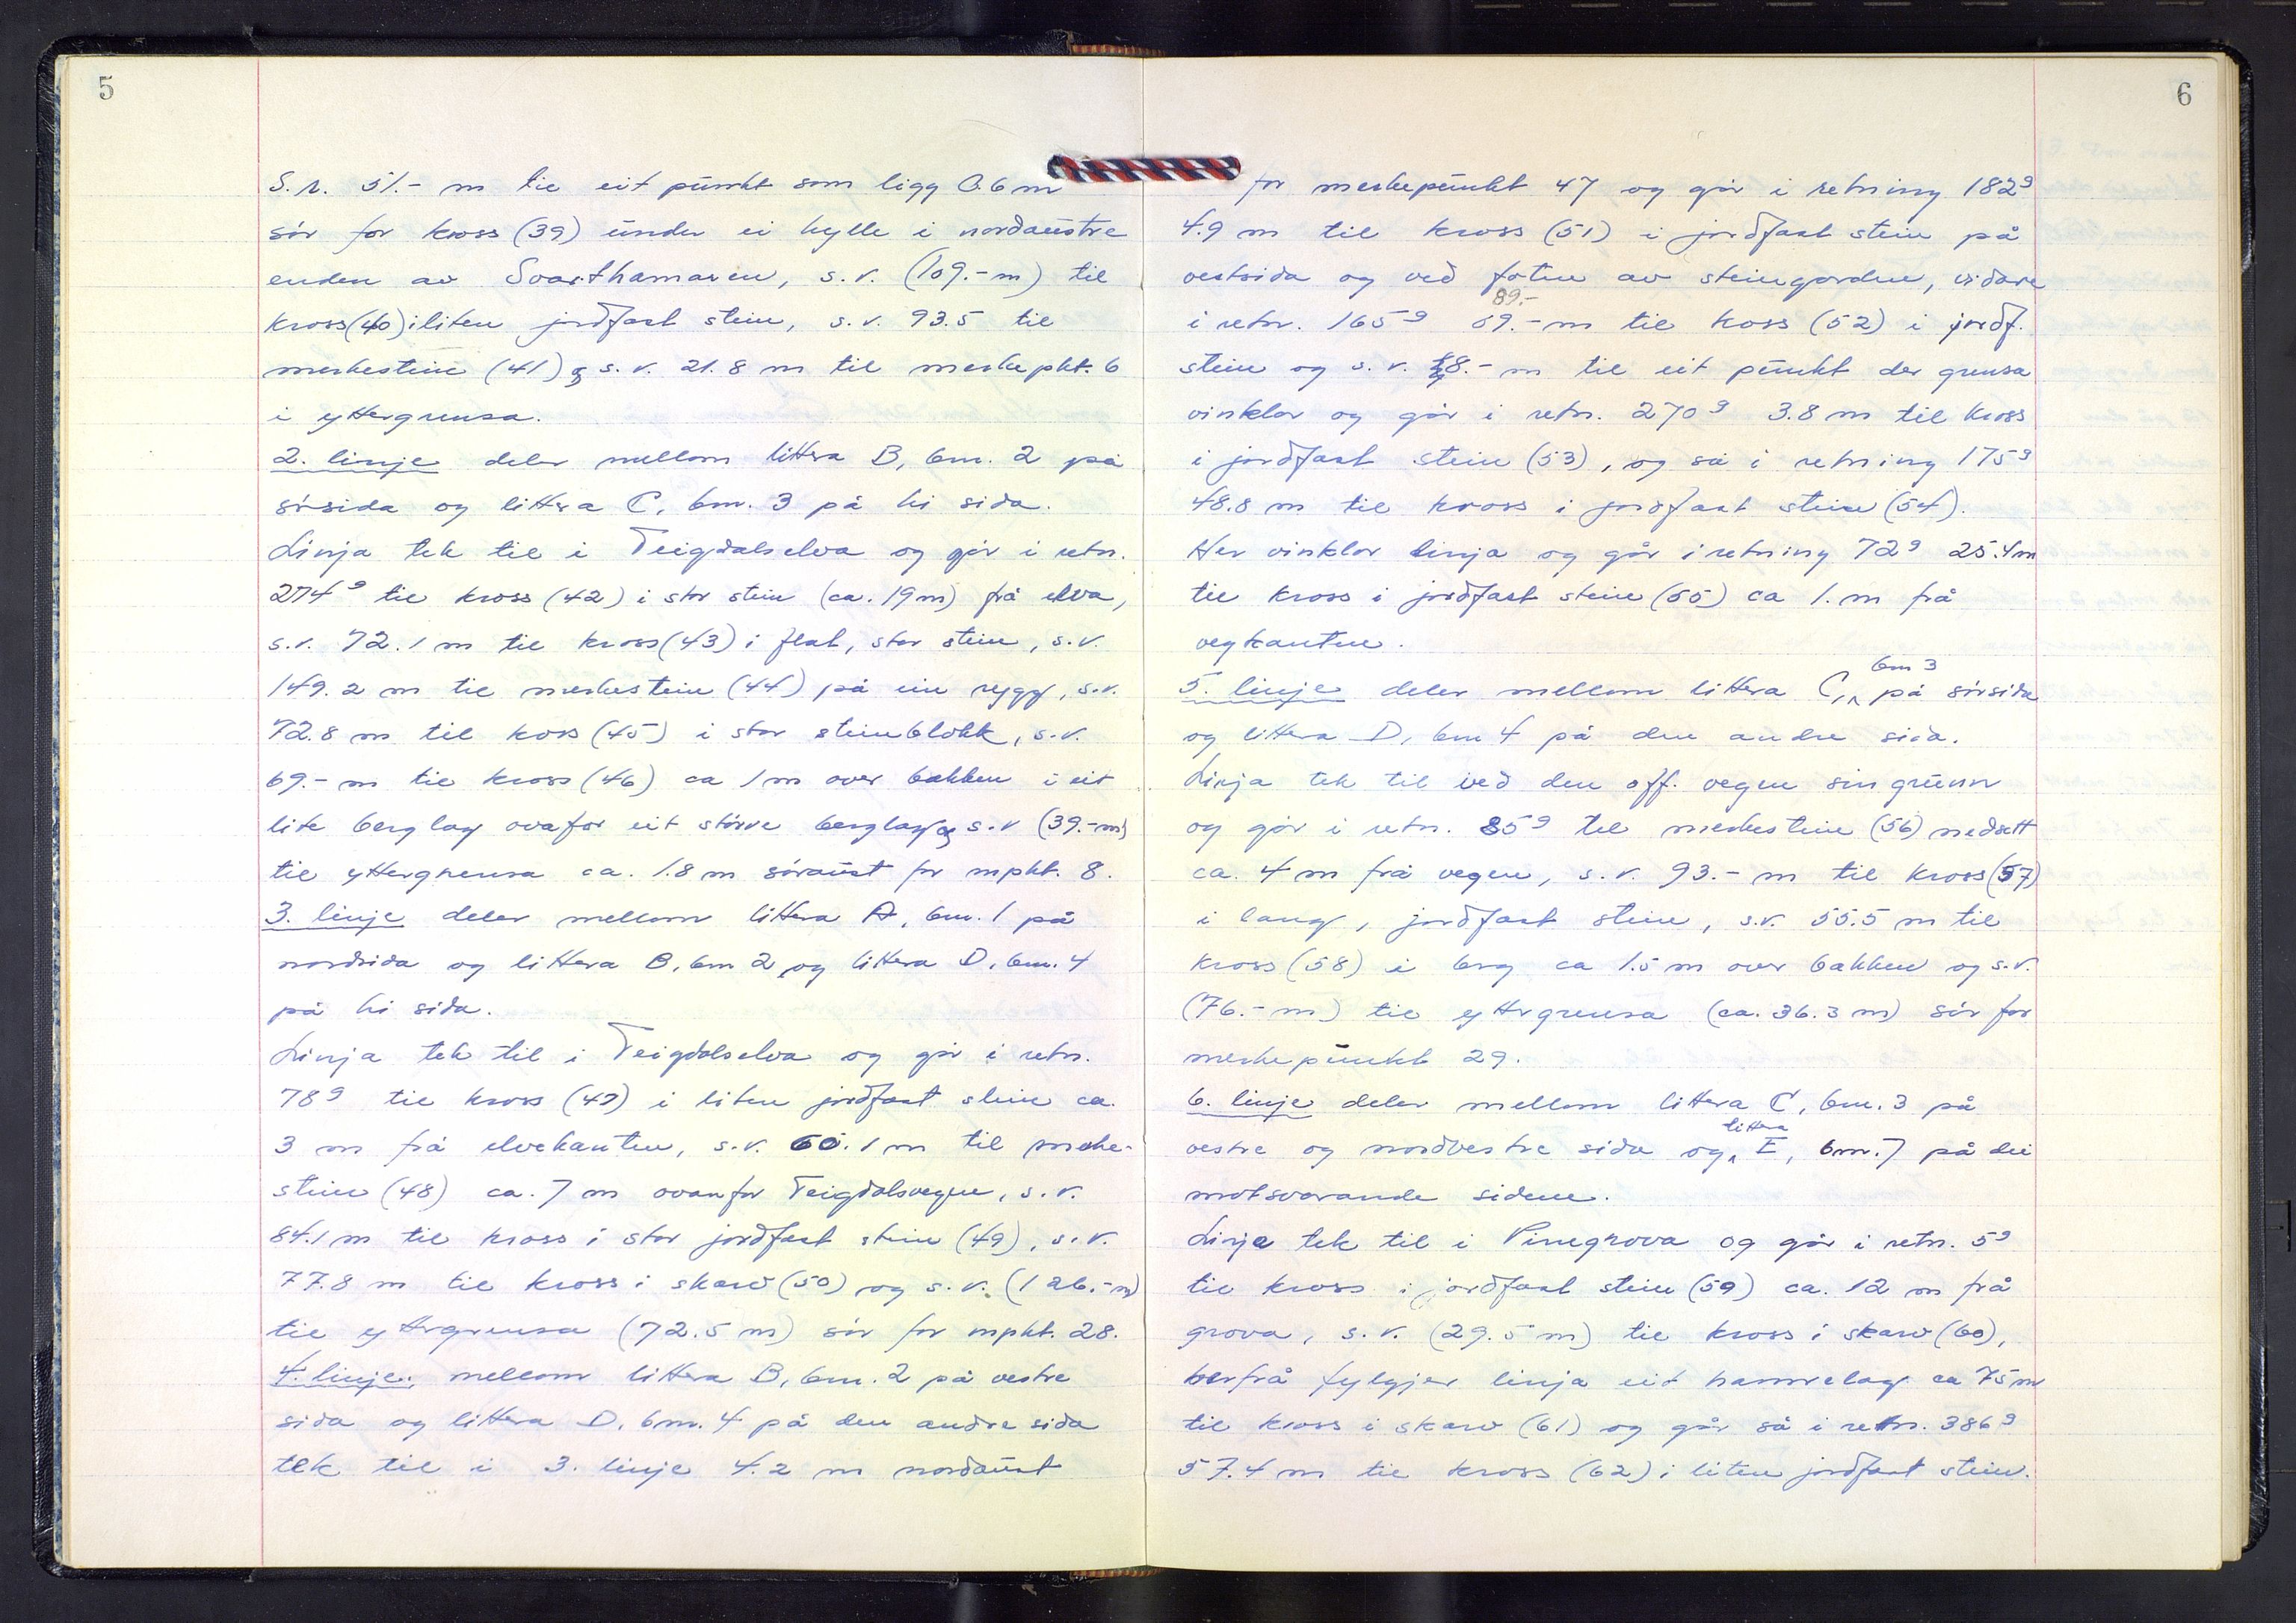 5
S.r. 51.- m til eit punkt som ligg 0.6 m
sór for kross (39) under ei hylle i nordaustre
enden av Svarthamaren, s.r. (109.-m) til
kross (40) i liten jordfast stein, s.r. 93.5 til
merkestein (41) og s.r. 21.8 m til merkepkt. 6
i yttergrensa.
2. linje deler mellom littra B, bm. 2 på
sørsida og littra C, bm. 3 på hi sida.
Linja tek til i Teigdalselva og går i retn.
274g til kross (42) i stor stein (ca. 19m) frå elva,
s.r. 72.1 m til kross (43) i flat, stor stein, s.r.
149.2 m til merkestein (44) på ein rygg, s.r.
72.8 m til kors (45) i stor steinblokk, s.r.
69.- m til kross (46) ca 1 m over bakken i eit
lite berglag ovafor eit større berglag og s.r (39.-m)
til yttergrensa ca. 1.8 m søraust for mpkt. 8.
3. linje deler mellom littra A, bm. 1 på
nordsida og littra B, bm 2 og littra D, bm. 4
på hi sida.
Linja tek til i Teigdalselva og går i retn.
78g til kross (47) i liten jordfast stein ca.
3 m frå elvekanten, s.r. 60.1 m til merke-
stein (48) ca. 7 m ovanfor Teigdalsvegen, s.r.
84.1 m til kross i stor jordfast stein (49), s.r.
77.8 m til kross i skarv (50) og s.r. (126.-m)
til yttergrensa (72.5 m) sør for mpkt. 28.
4. linje: mellom littra B, bm. 2 på vestre
sida og littra D, bm. 4 på den andre sida
tek til i 3. linje 4.2 m nordaust
6
for merkepunkt 47 og går i retning 182g
4.9 m til kross (51) i jordfast stein på
vestsida og ved foten av steingarden, vidare
89.-
i retn. 165g 89.-m til koss (52) i jordf.
stein og s.r. 18.- m til eit punkt der grensa
vinklar og går i retn. 270g 3.8 m til kross
i jordfast stein (53), og så i retning 175g
48.8 m til kross i jordfast stein (54).
Her vinklar linja og går i retning 72g 25.4m
til kross i jordfast stein (55) ca 1. m frå
vegkanten.
bm 3
5. linje deler mellom littra C, på sørsida
og littera D, bm 4 på den andre sida.
Linja tek til ved den off. vegen sin grunn
og går i retn. 85g til merkestein (56) nedsett
ca. 4 m frå vegen, s.r. 93.- m til kross (57)
i lang, jordfast stein, s.r. 55.5 m til
kross (58) i berg ca 1.5 m over bakken og s.r.
(76.- m) til yttergrensa (ca. 36.3 m) sør for
merkepunkt 29.
6. linje deler mellom littera C, bm. 3 på
littra
vestre og nordvestre sida og E, bm. 7 på dei
motsvarande sidene.
Linja tek til i Vinegrova og går i retn. 5g
til kross i jordfast stein (59) ca. 12 m frå
grova, s.r. (29.5 m) til kross i skarv (60),
herfrå fylgjer linja eit hamrelag ca 75 m
til kross i skarv (61) og går så i retn. 386g
57.4 m til kross (62) i liten jordfast stein.